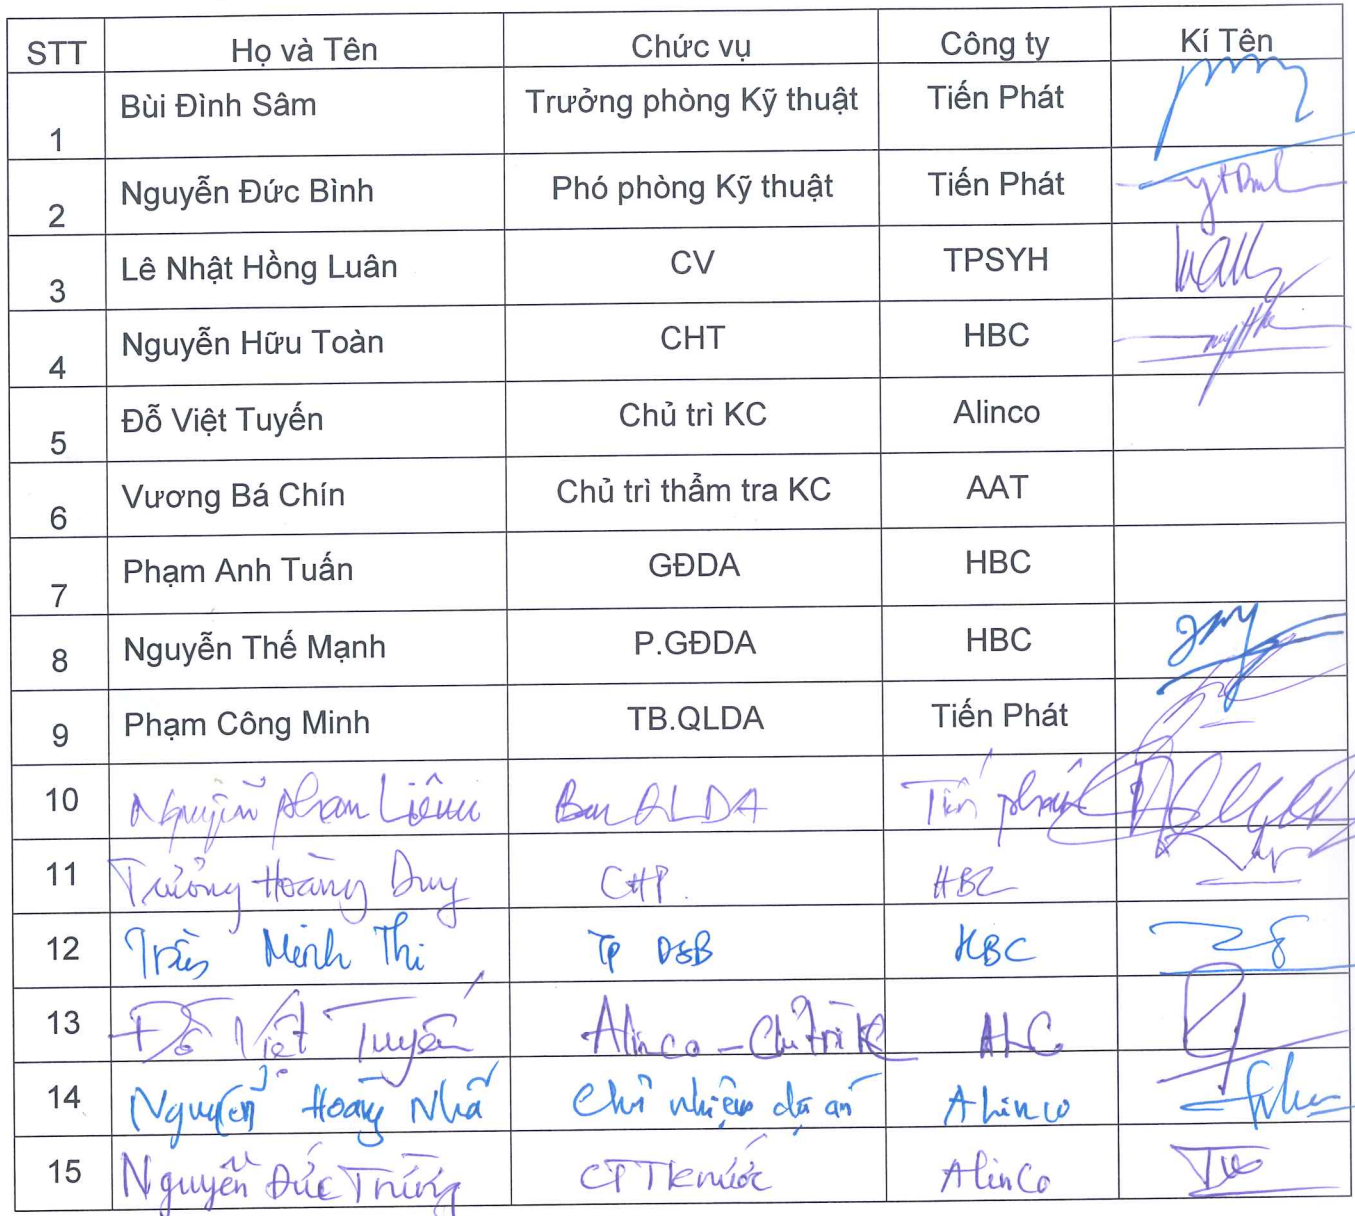 STT Họ và Tên Chức vụ Công ty Kí Tên
1 Bùi Đình Sâm Trưởng phòng Kỹ thuật Tiến Phát
2 Nguyễn Đức Bình Phó phòng Kỹ thuật Tiến Phát
3 Lê Nhật Hồng Luân CV TPSYH
4 Nguyễn Hữu Toàn CHT HBC
5 Đỗ Việt Tuyến Chủ trì KC Alinco
6 Vương Bá Chín Chủ trì thẩm tra KC AAT
7 Phạm Anh Tuấn GĐDA HBC
8 Nguyễn Thế Mạnh P.GĐDA HBC
9 Phạm Công Minh TB.QLDA Tiến Phát
10 Nguyễn Phan Liêm Ban QLDA Tiến phát
11 Trưởng Hoàng Duy CHP. HBC
12 Trần Minh Thi TP D&B HBC
13 Đỗ Việt Tuyến Alinco - Chủ trì KC ALC
14 Nguyễn Hoàng Nhã Chủ nhiệm dự án Alinco
15 Nguyễn Đức Trung CTTK nước AlinCo